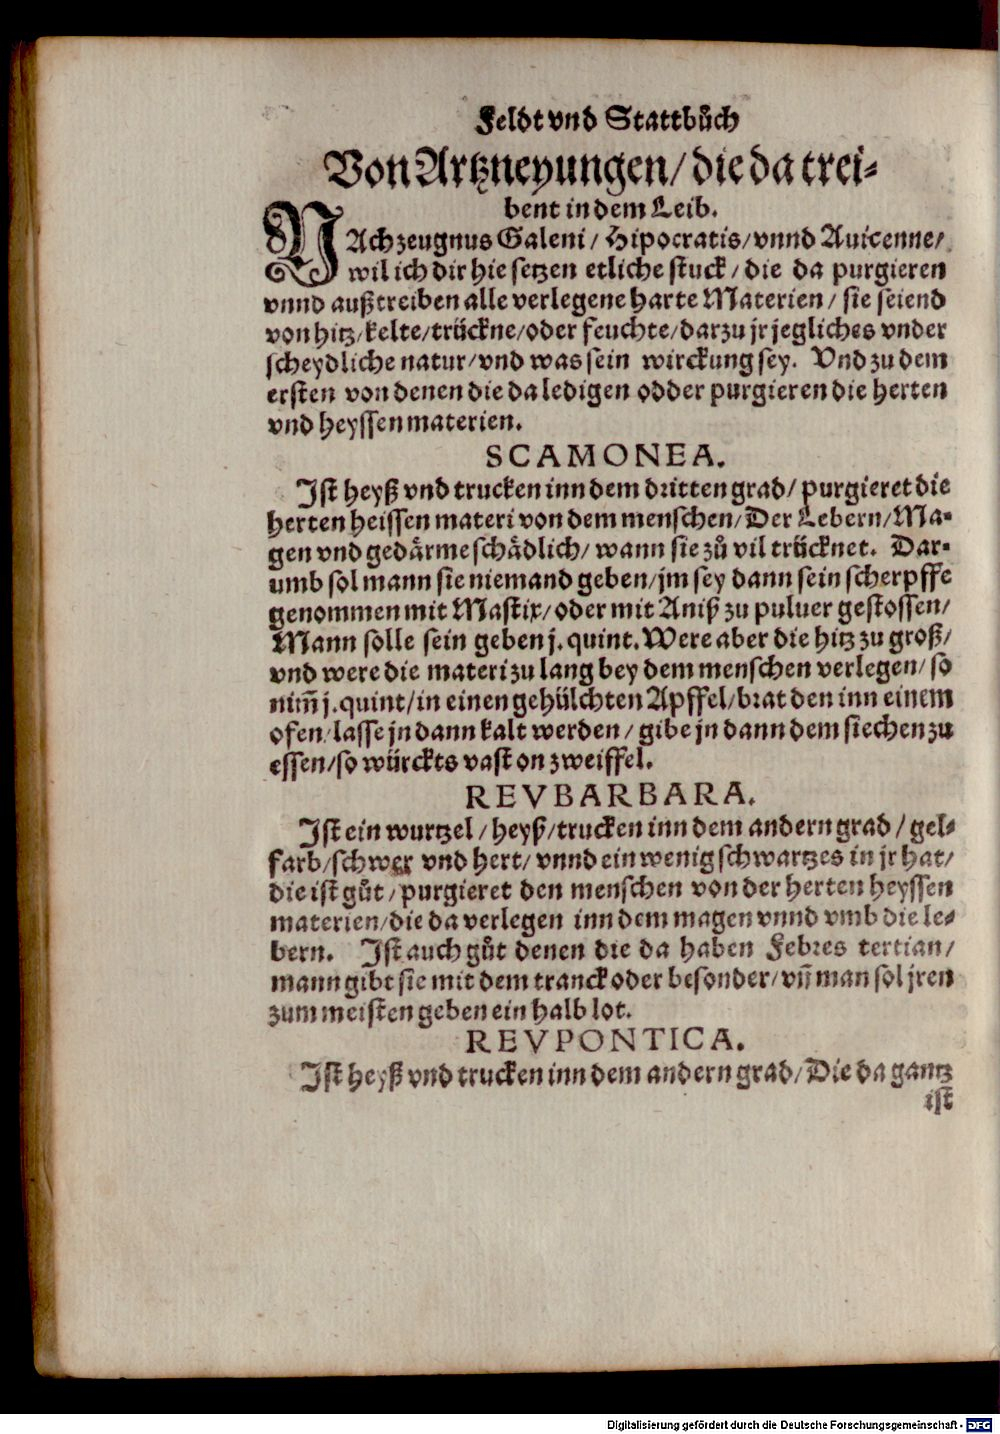 Feldt vnd Stattbuͦch
Von Artzneyungen/ die da trei-
bent in dem Leib.
NAch zeugnus Galeni/ Hipocratis/ vnnd Auicenne/
wil ich dir hie setzen etliche stuck/ die da purgieren
vnnd außtreiben alle verlegene harte Materien/ sie seiend
von hitz/ kelte/ trückne/ oder feuchte/ darzu jr jegliches vnder
scheydliche natur/ vnd was sein wirckung sey. Vnd zu dem
ersten von denen die da ledigen odder purgieren die herten
vnd heyssen materien.
SCAMONEA.
Jst heyß vnd trucken inn dem dritten grad/ purgieret die
herten heissen materi von dem menschen/ Der Lebern/ Ma-
gen vnd gedaͤrme schaͤdlich/ wann sie zuͦ vil trücknet. Dar-
umb sol mann sie niemand geben/ jm sey dann sein scherpffe
genommen mit Mastix/ oder mit Aniß zu puluer gestossen/
Mann solle sein geben j. quint. Were aber die hitz zu groß/
vnd were die materi zu lang bey dem menschen verlegen/ so
nim̃ j. quint/ in einen gehülchten Apffel/ brat den inn einem
ofen/ lasse jn dann kalt werden/ gibe jn dann dem siechen zu
essen/ so würckts vast on zweiffel.
REVBARBARA.
Jst ein wurtzel/ heyß/ trucken inn dem andern grad/ gel-
farb/ schwer vnd hert/ vnnd ein wenig schwartzes in jr hat/
die ist guͦt/ purgieret den menschen von der herten heyssen
materien/ die da verlegen inn dem magen vnnd vmb die le-
bern. Jst auch guͦt denen die da haben Febres tertian/
mann gibt sie mit dem tranck oder besonder/ vñ man sol jren
zum meisten geben ein halb lot.
REVPONTICA.
Jst heyß vnd trucken inn dem andern grad/ Die da gantz
ist
Digitalisierung gefördert durch die Deutsche Forschungsgemeinschaft - DFG